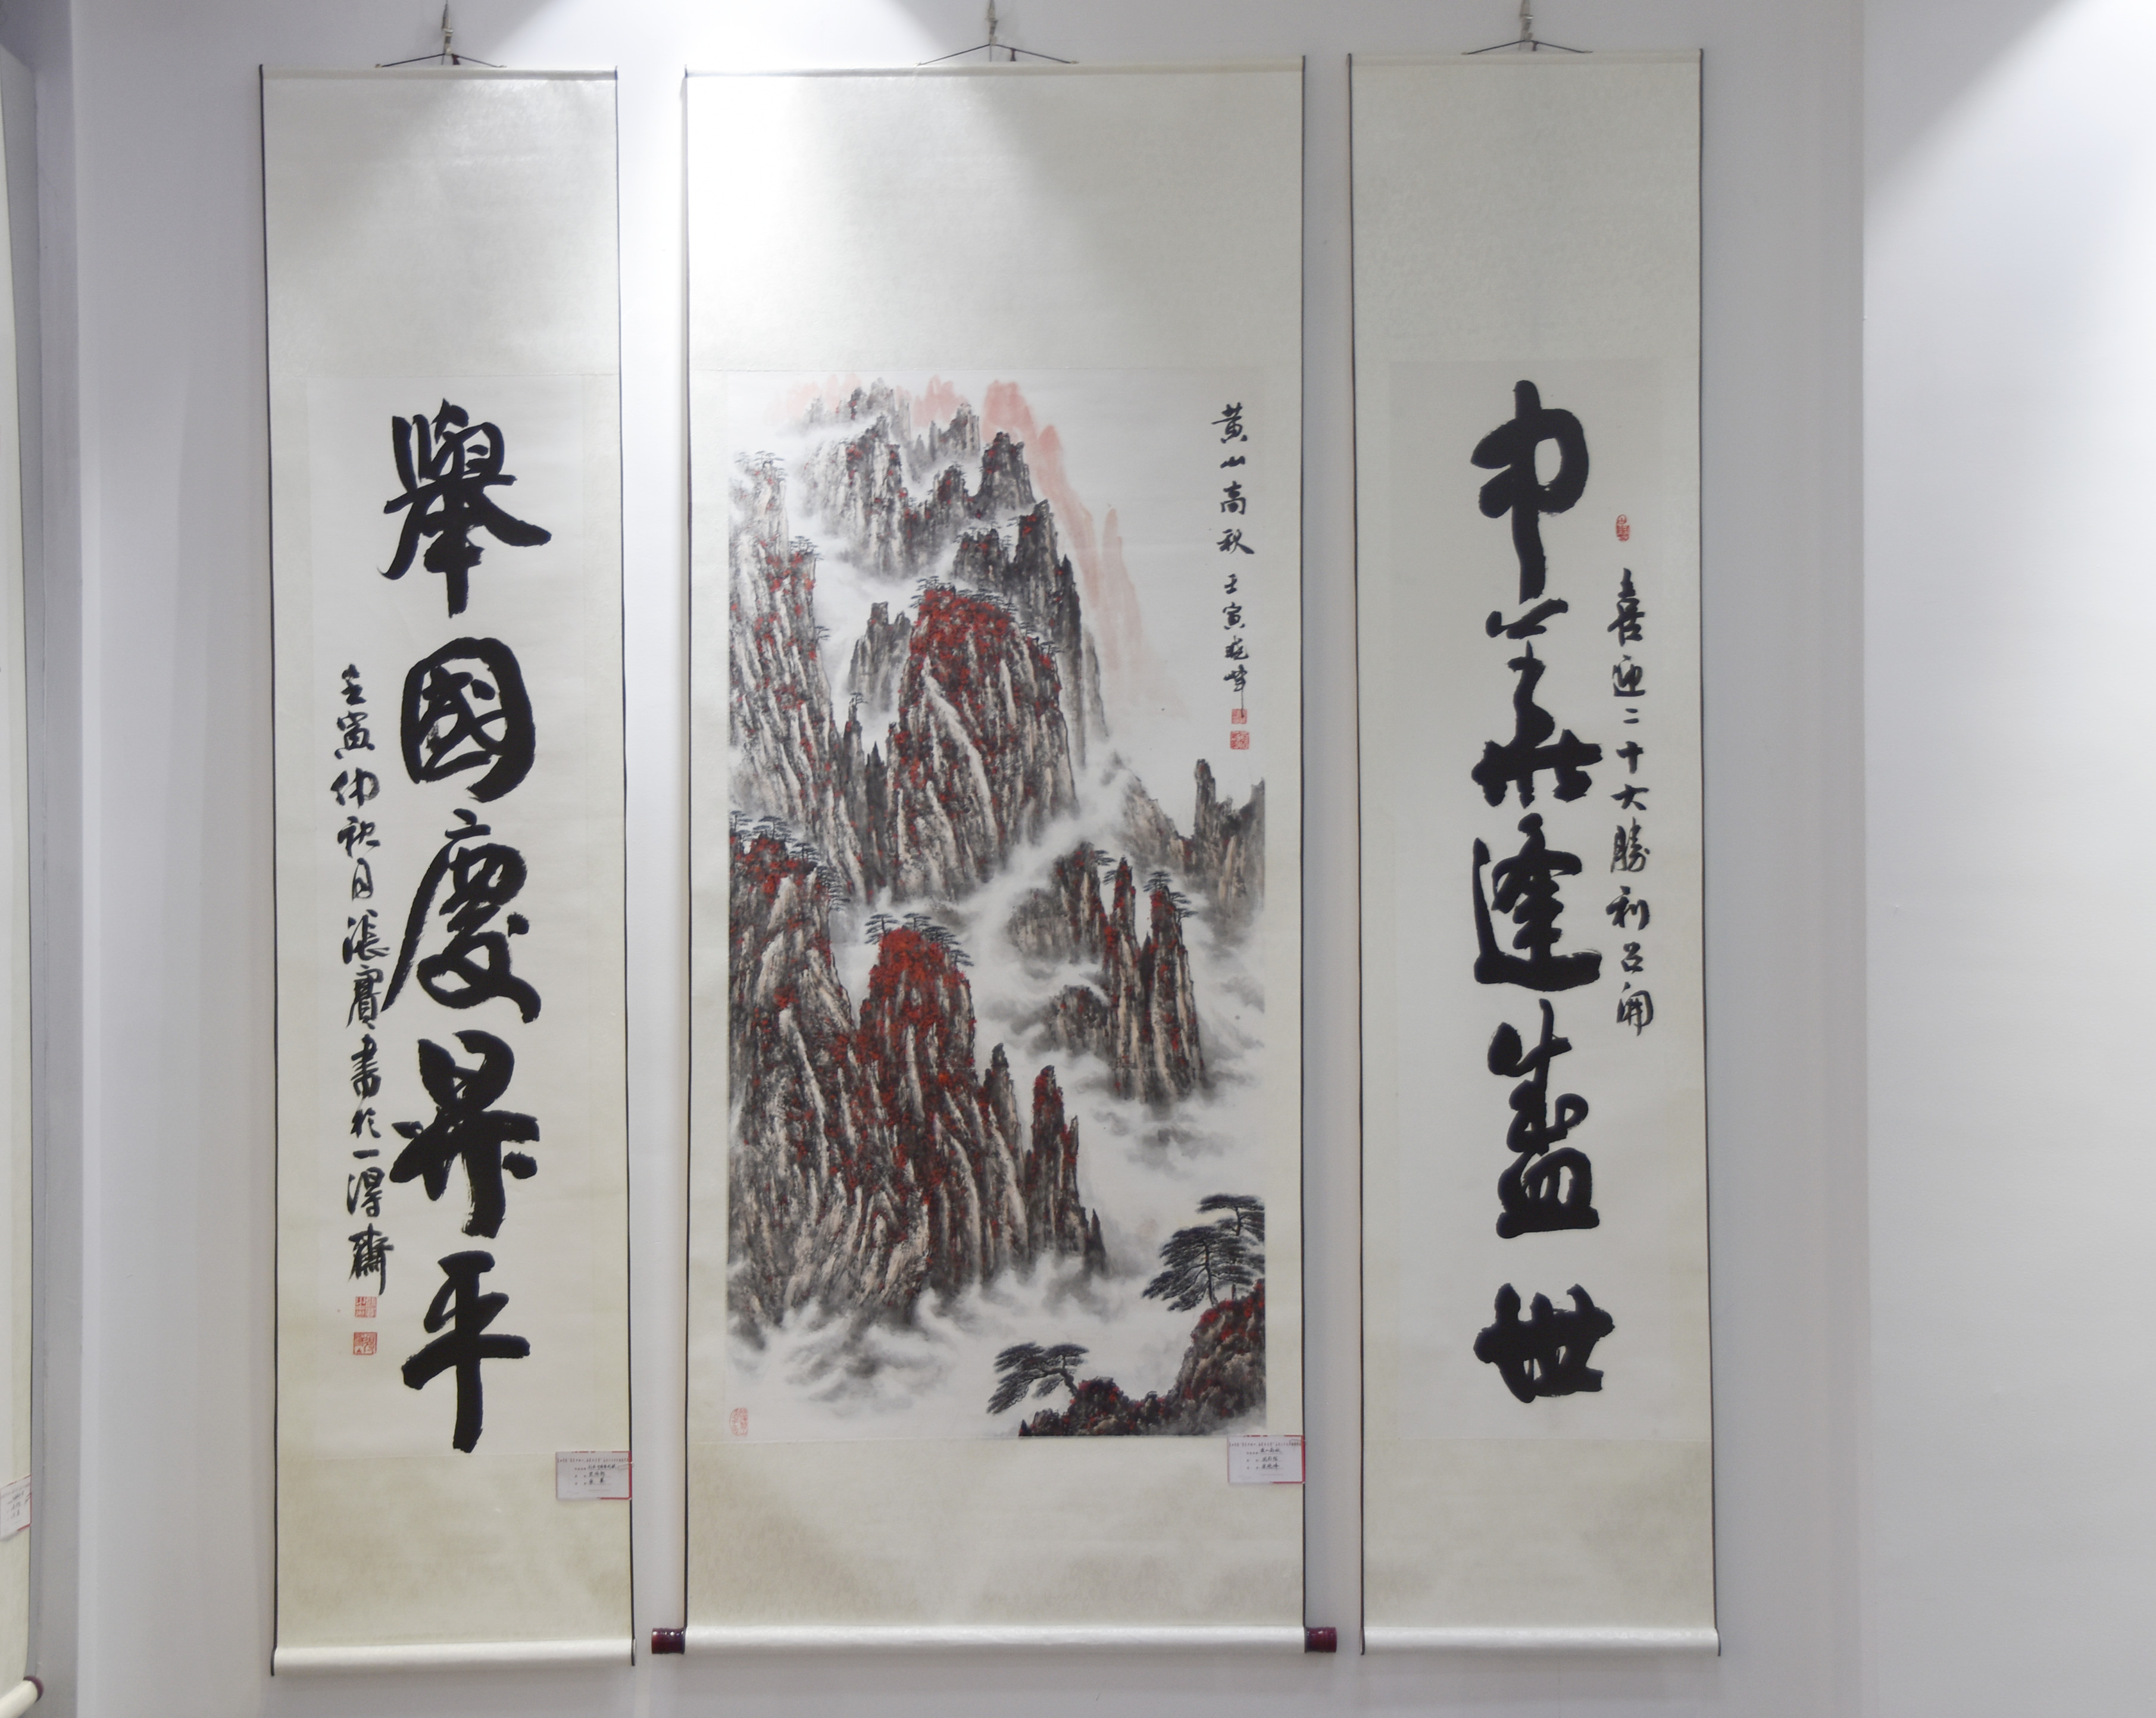 中华逢盛世
喜迎二十大勝利召開
黄山高秋 壬寅晓峰
舉國慶昇平
壬寅仲秋月張寶書於一得齋